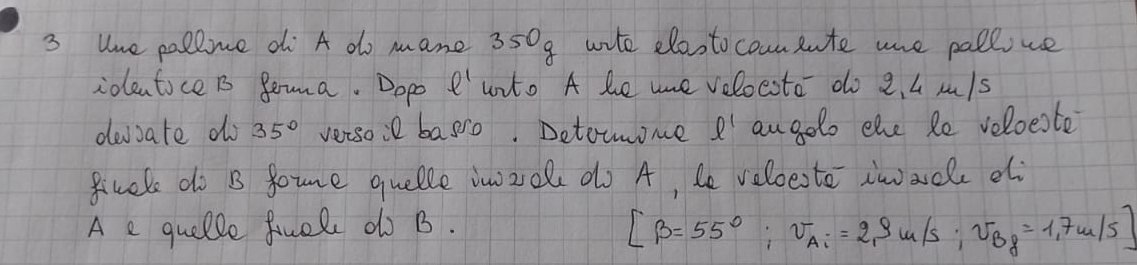 3 Una pallina di A di massa 350g urta elasticamente una pallina
identica B ferma. Dopo l'urto A ha una velocità di 2,4 m/s
deviata di 35° verso il basso. Determina l'angolo che la velocità
finale di B forma quella iniziale di A, la velocità iniziale di
A e quella finale di B. [β=55° ; v_Ai = 2,9 m/s ; v_Bf = 1,7 m/s]